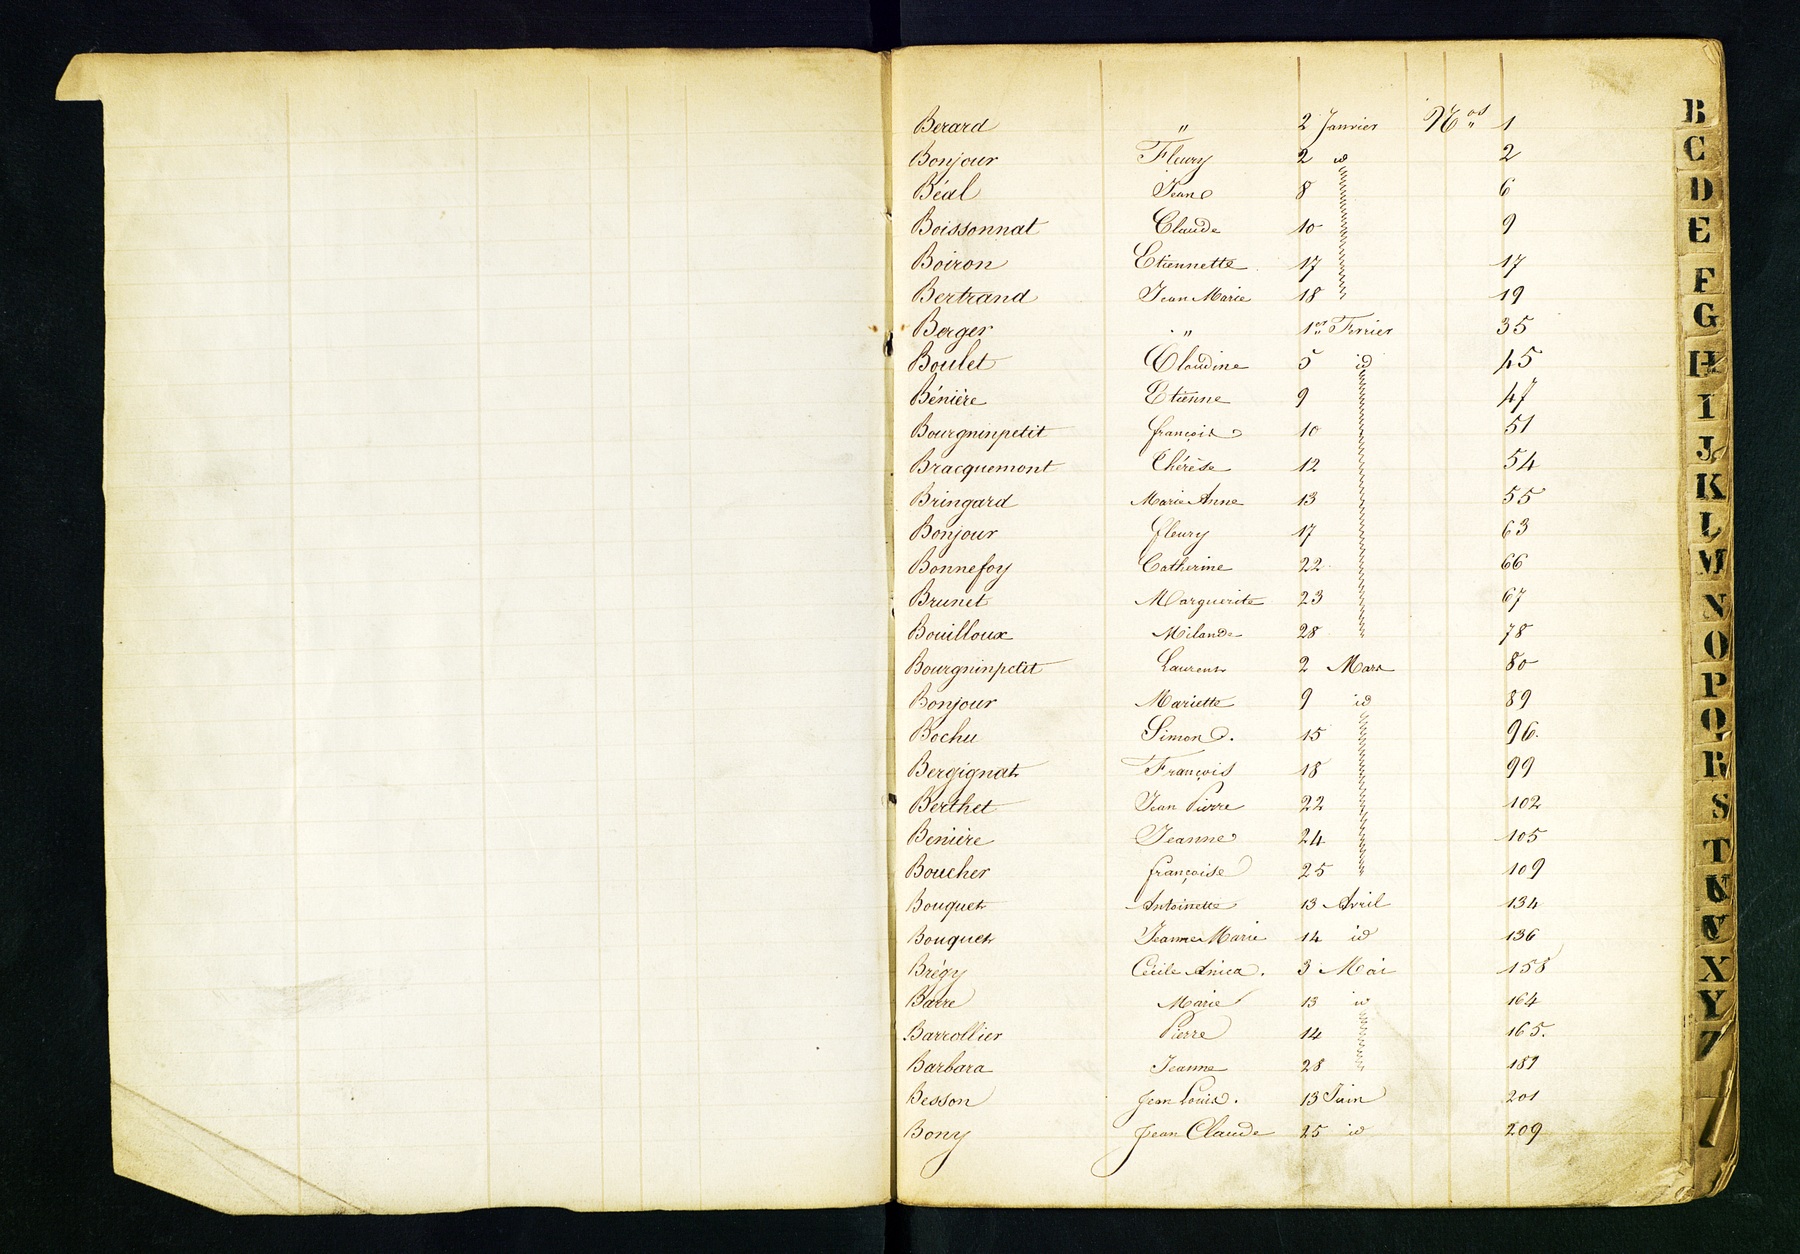 Berard " 2 Janvier Nos 1
Bonjour Fleury 2 id 2
Béal Jean 8 6
Boissonnat Claude 10 9
Boiron Etiennette 17 17
Bertrand Jean Marie 18 19
Berger " 1er Fevrier 35
Boulet Claudine 5 id 45
Bénière Etienne 9 47
Bourgninpetit françois 10 51
Bracquemont Thérèse 12 54
Bringard Marie Anne 13 55
Bonjour fleury 17 63
Bonnefoy Catherine 22 66
Brunet Marguerite 23 67
Bouilloux Milande 28 78
Bourgninpetit Laurent 2 Mars 80
Bonjour Mariette 9 id 89
Bochu Simon. 15 96.
Bergignat François 18 99
Berthet Jean Pierre 22 102
Beniere Jeanne 24 105
Boucher françoise 25 109
Bouquet Antoinette 13 Avril 134
Bouquet Jeanne Marie 14 id 136
Brégy Cécile 3 Mai 158
Barre Marie 13 id 164
Barrollier Pierre 14 165.
Barbara Jeanne 28 189
Besson Jean Louis. 13 Juin 201
Bony Jean Claude 25 id 209
B
C
D
E
F
G
H
I
J
K
L
M
N
O
P
Q
R
S
T
U
V
X
Y
Z